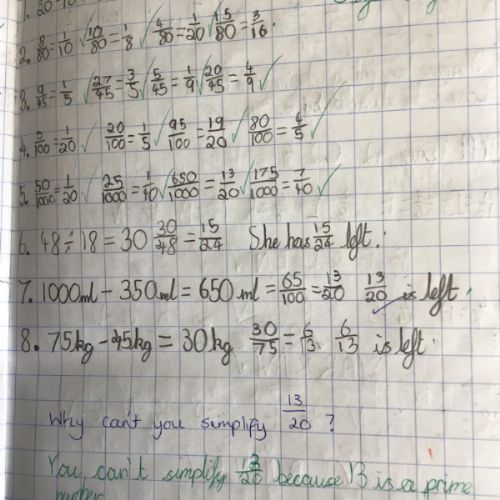 1. 20
2. 8/80 = 1/10 10/80 = 1/8 4/80 = 1/20 15/80 = 3/16.
3. 9/45 = 1/5 27/45 = 3/5 5/45 = 1/9 20/45 = 4/9
4. 5/100 = 1/20 20/100 = 1/5 95/100 = 19/20 80/100 = 4/5
5. 50/1000 = 1/20 25/1000 = 1/40 650/1000 = 13/20 175/1000 = 7/40
6. 48 ÷ 18 = 30 30/48 = 15/24 She has 15/24 left.
7. 1000ml - 350ml = 650 ml = 65/100 = 13/20 13/20 is left.
8. 75kg - 45kg = 30kg 30/75 = 6/13 6/13 is left.
Why can't you simplify 13/20 ?
You can't simplify /20 because 13 is a prime
number